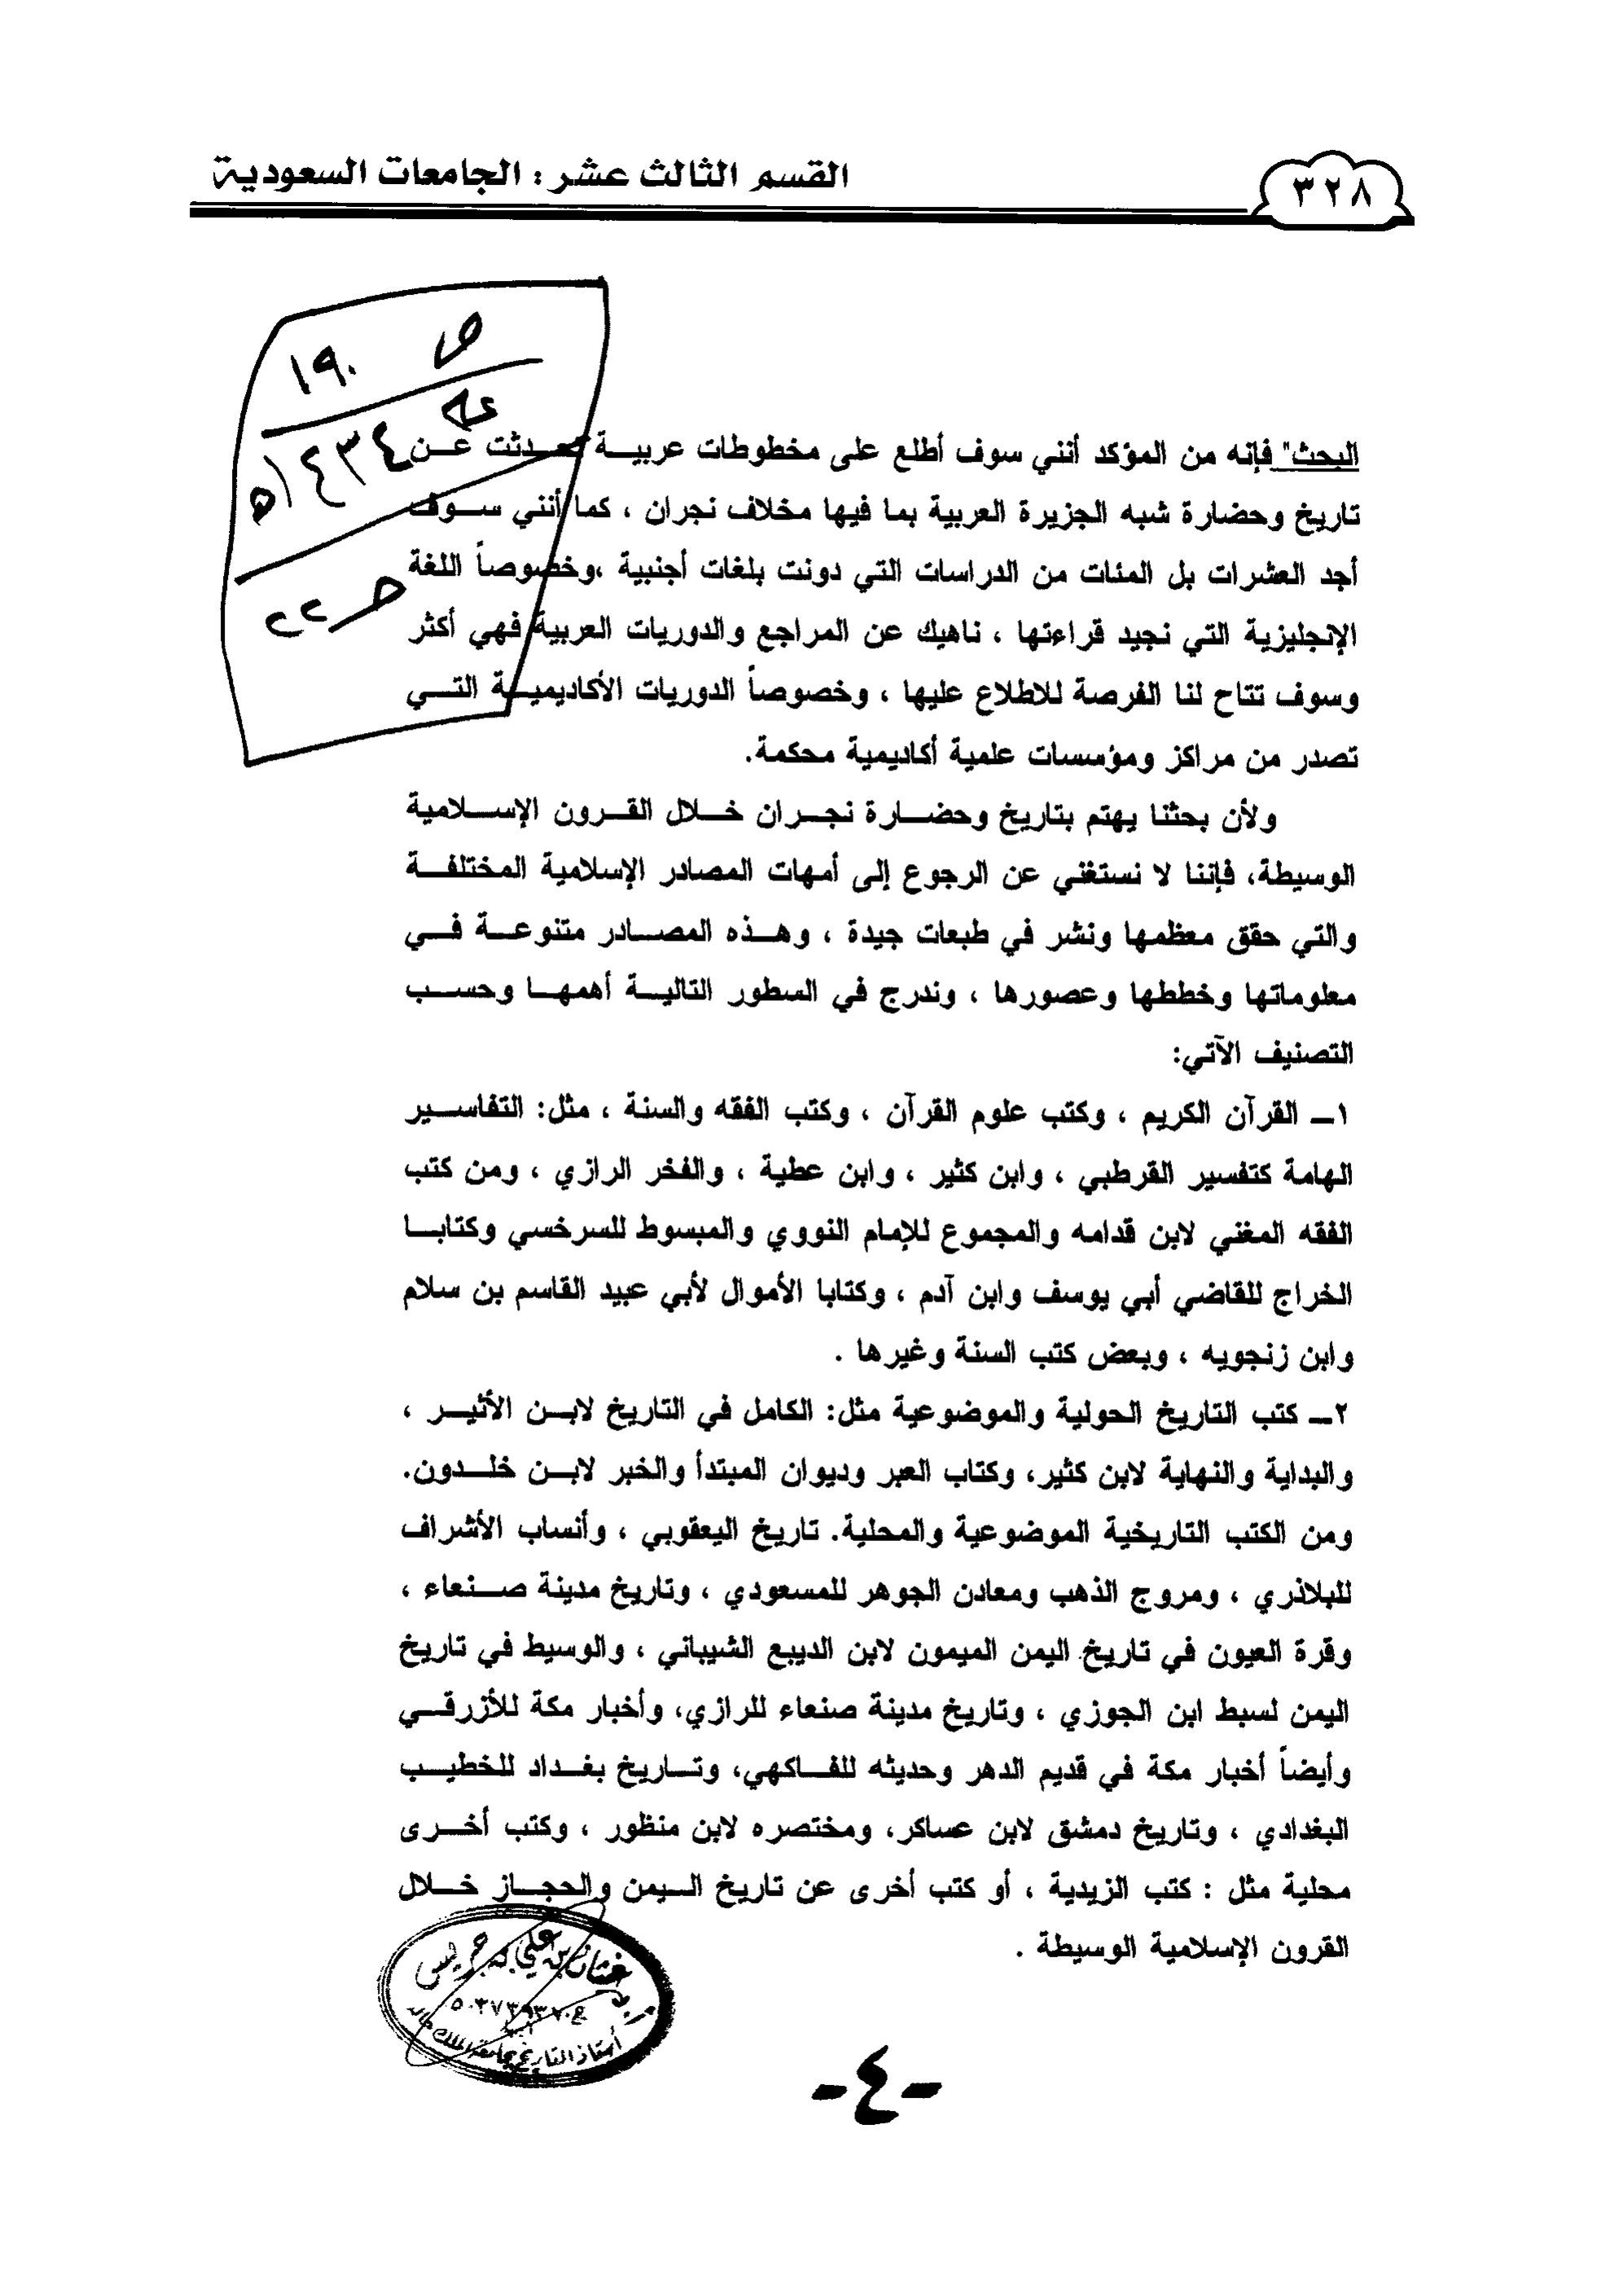 ٣٢٨
القسم الثالث عشر: الجامعات السعودية
ص ١٩٠
١٤٣٤هـ
البحث" فإنه من المؤكد أنني سوف أطلع على مخطوطات عربية تحدثت عن
تاريخ وحضارة شبه الجزيرة العربية بما فيها مخلاف نجران ، كما أنني سوف
أجد العشرات بل المئات من الدراسات التي دونت بلغات أجنبية ،وخصوصاً اللغة
الإنجليزية التي نجيد قراءتها ، ناهيك عن المراجع والدوريات العربية فهي أكثر
وسوف تتاح لنا الفرصة للاطلاع عليها ، وخصوصاً الدوريات الأكاديمية التي
تصدر من مراكز ومؤسسات علمية أكاديمية محكمة.
ولأن بحثنا يهتم بتاريخ وحضارة نجران خلال القرون الإسلامية
الوسيطة، فإننا لا نستغني عن الرجوع إلى أمهات المصادر الإسلامية المختلفة
والتي حقق معظمها ونشر في طبعات جيدة ، وهذه المصادر متنوعة في
معلوماتها وخططها وعصورها ، وندرج في السطور التالية أهمها وحسب
التصنيف الآتي:
١ــ القرآن الكريم ، وكتب علوم القرآن ، وكتب الفقه والسنة ، مثل: التفاسير
الهامة كتفسير القرطبي ، وابن كثير ، وابن عطية ، والفخر الرازي ، ومن كتب
الفقه المغني لابن قدامه والمجموع للإمام النووي والمبسوط للسرخسي وكتابا
الخراج للقاضي أبي يوسف وابن آدم ، وكتابا الأموال لأبي عبيد القاسم بن سلام
وابن زنجويه ، وبعض كتب السنة وغيرها .
٢ــ كتب التاريخ الحولية والموضوعية مثل: الكامل في التاريخ لابن الأثير ،
والبداية والنهاية لابن كثير، وكتاب العبر وديوان المبتدأ والخبر لابن خلدون.
ومن الكتب التاريخية الموضوعية والمحلية. تاريخ اليعقوبي ، وأنساب الأشراف
للبلاذري ، ومروج الذهب ومعادن الجوهر للمسعودي ، وتاريخ مدينة صنعاء ،
وقرة العيون في تاريخ اليمن الميمون لابن الديبع الشيباني ، والوسيط في تاريخ
اليمن لسبط ابن الجوزي ، وتاريخ مدينة صنعاء للرازي، وأخبار مكة للأزرقي
وأيضاً أخبار مكة في قديم الدهر وحديثه للفاكهي، وتاريخ بغداد للخطيب
البغدادي ، وتاريخ دمشق لابن عساكر، ومختصره لابن منظور ، وكتب أخرى
محلية مثل : كتب الزيدية ، أو كتب أخرى عن تاريخ اليمن والحجاز خلال
القرون الإسلامية الوسيطة .
بن علي بن جريس
أستاذ التاريخ بجامعة الملك خالد
-٤-